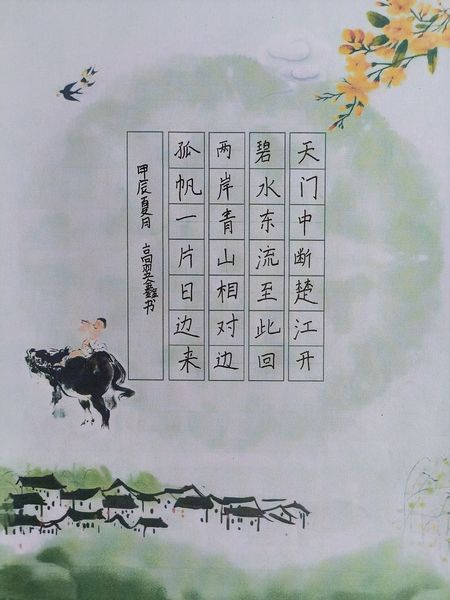 天门中断楚江开
碧水东流至此回
两岸青山相对边
孤帆一片日边来
甲辰夏月 高翌鑫书